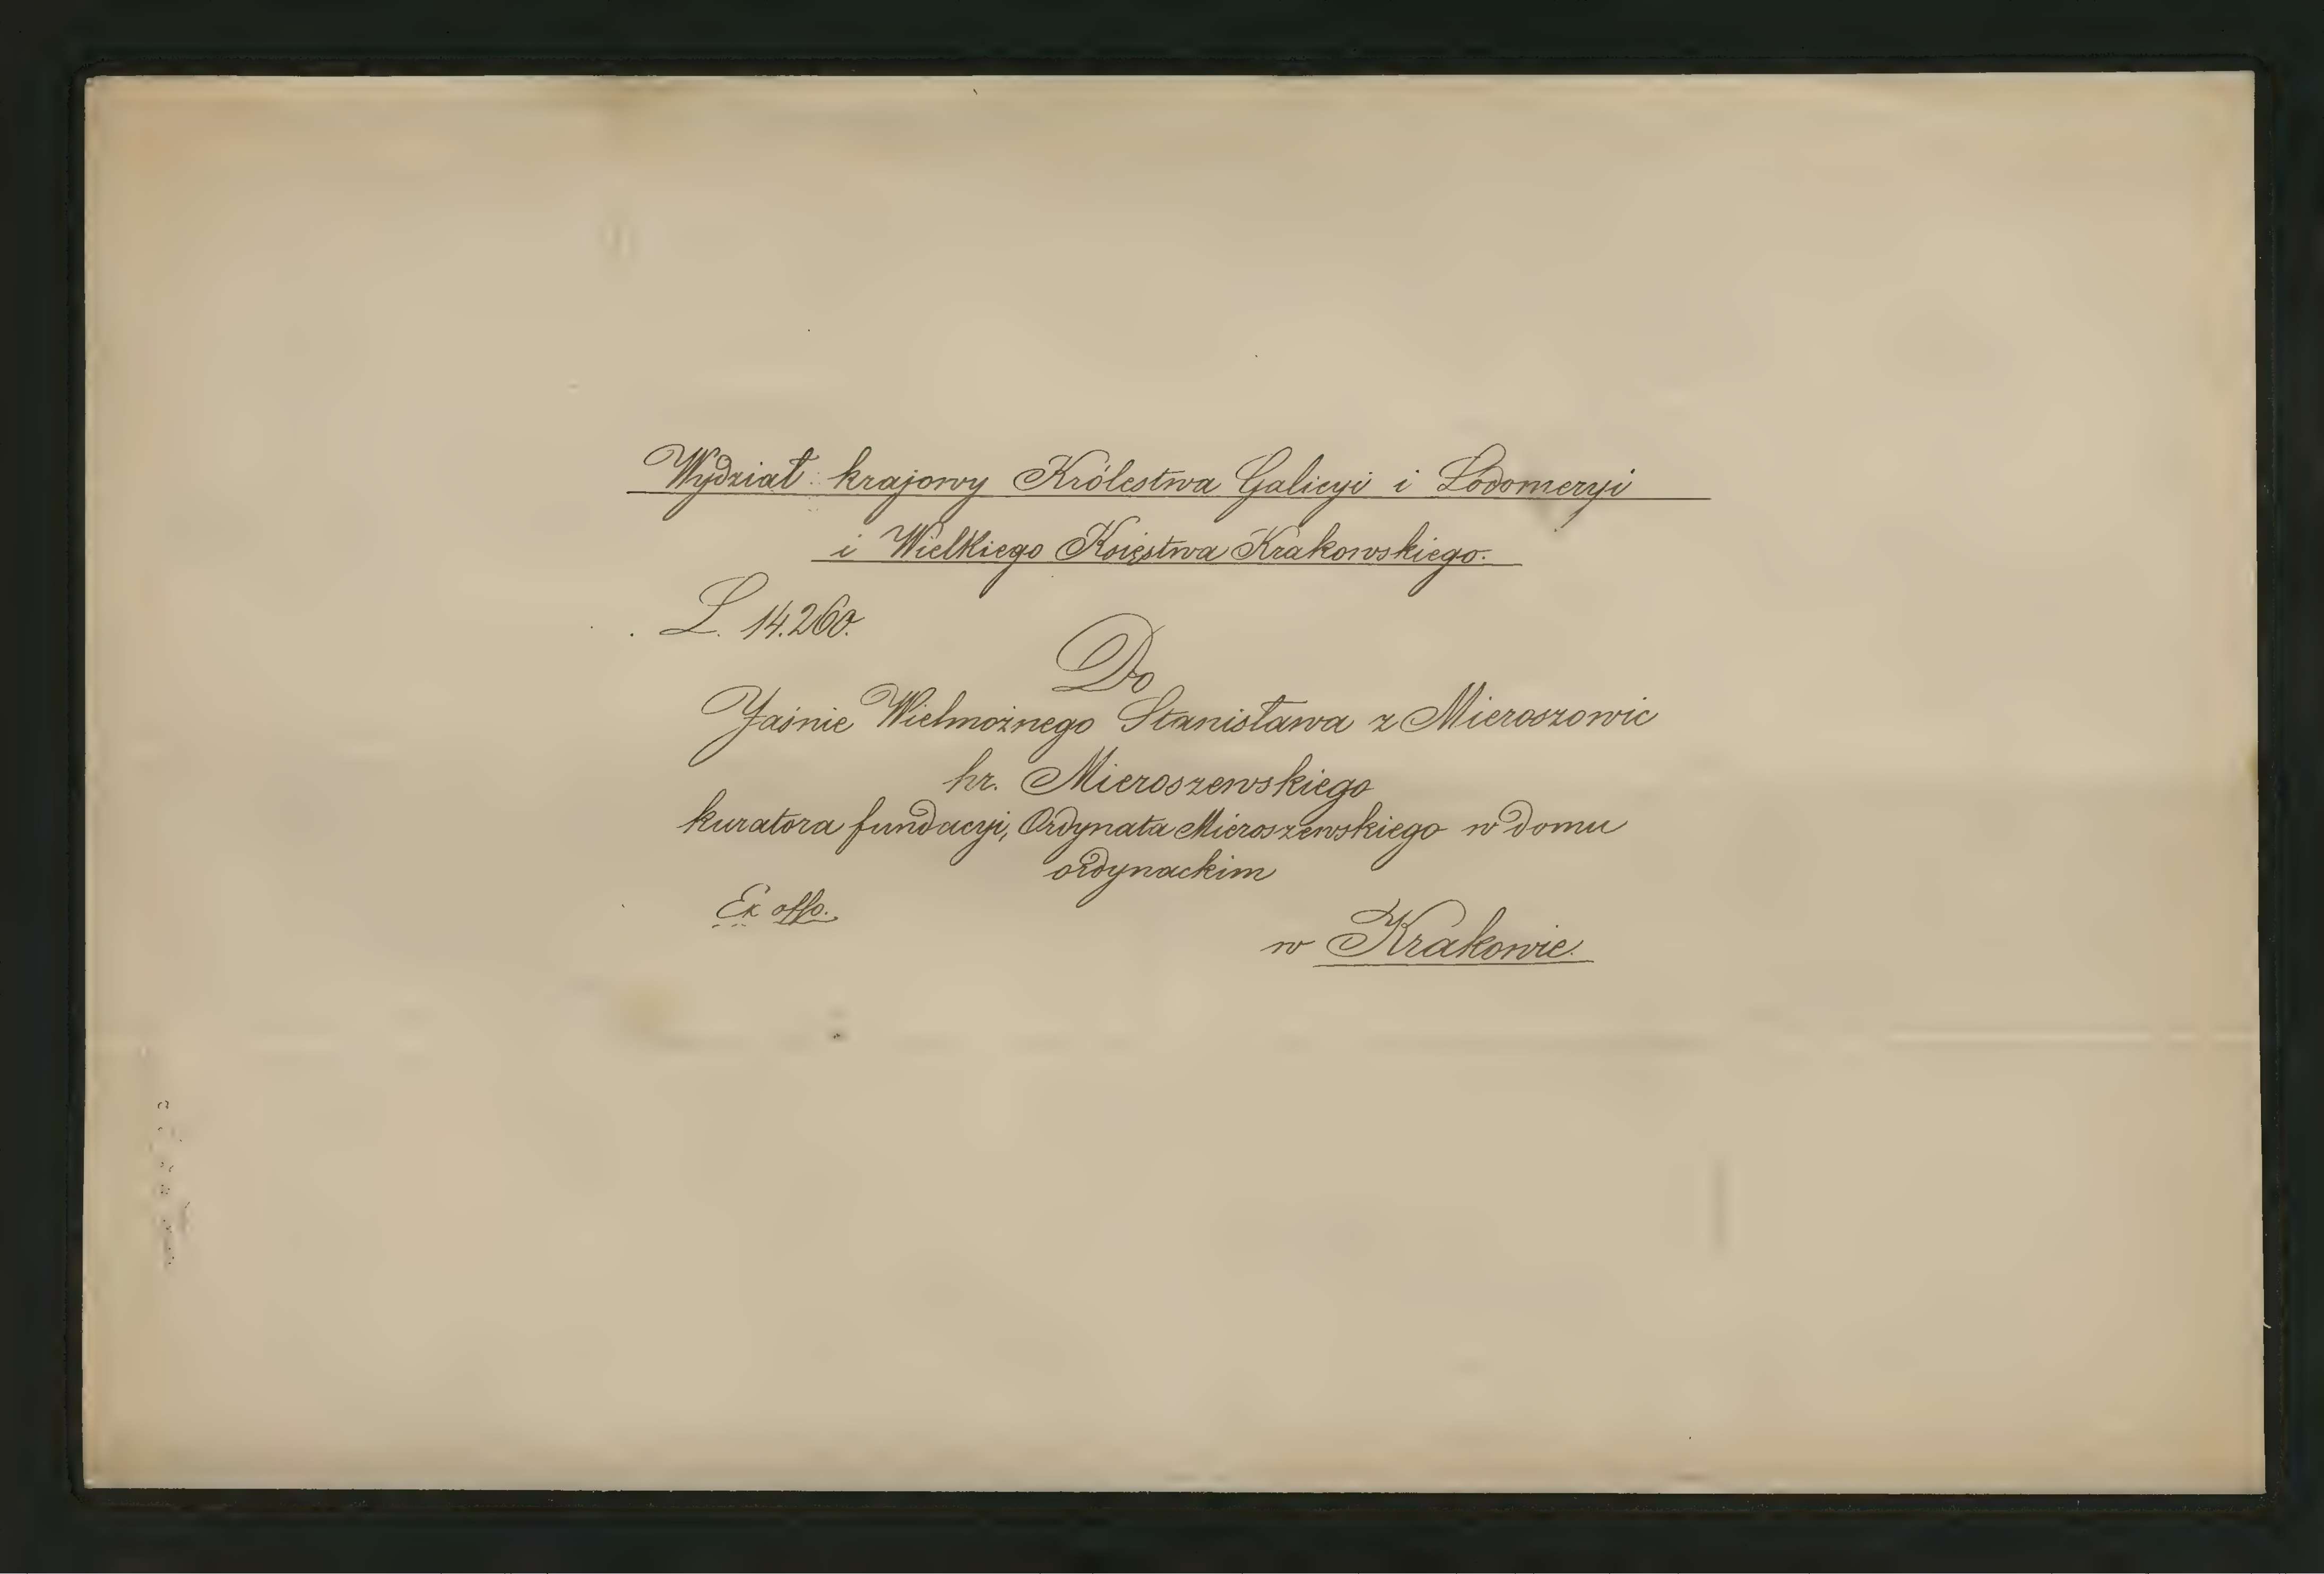 Wydział krajowy Królestwa Galicyi i Lodomeryi
i Wielkiego Księstwa Krakowskiego.
L. 14.260.
Do
Jaśnie Wielmożnego Stanisława z Mieroszowic
hr. Mieroszewskiego
kuratora fundacyi, Ordynata Mieroszewskiego w domu
ordynackim
Ex offo.
w Krakowie.